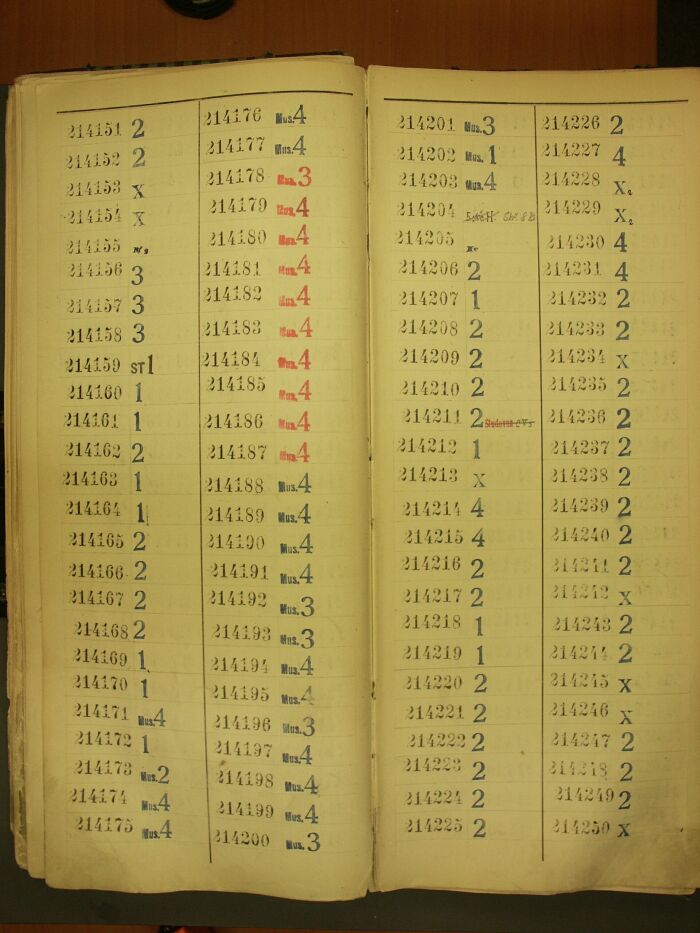 214151 2
214152 2
214153 X
214154 X
214155
214156 3
214157 3
214158 3
214159 ST 1
214160 1
214161 1
214162 2
214163 1
214164 1
214165 2
214166 2
214167 2
214168 2
214169 1
214170 1
214171 Mus. 4
214172 1
214173 Mus. 2
214174 Mus. 4
214175 Mus. 4
214176 Mus. 4
214177 Mus. 4
214178 Mus. 3
214179 Mus. 4
214180 Mus. 4
214181 Mus. 4
214182 Mus. 4
214183 Mus. 4
214184 Mus. 4
214185 Mus. 4
214186 Mus. 4
214187 Mus. 4
214188 Mus. 4
214189 Mus. 4
214190 Mus. 4
214191 Mus. 4
214192 Mus. 3
214193 Mus. 3
214194 Mus. 4
214195 Mus. 4
214196 Mus. 3
214197 Mus. 4
214198 Mus. 4
214199 Mus. 4
214200 Mus. 3
214201 Mus. 3
214202 Mus. 1
214203 Mus. 4
214204
214205
214206 2
214207 1
214208 2
214209 2
214210 2
214211 2
214212 1
214213 X
214214 4
214215 4
214216 2
214217 2
214218 1
214219 1
214220 2
214221 2
214222 2
214223 2
214224 2
214225 2
214226 2
214227 4
214228 X2
214229 X2
214230 4
214231 4
214232 2
214233 2
214234 X
214235 2
214236 2
214237 2
214238 2
214239 2
214240 2
214241 2
214242 X
214243 2
214244 2
214245 X
214246 X
214247 2
214248 2
214249 2
214250 X